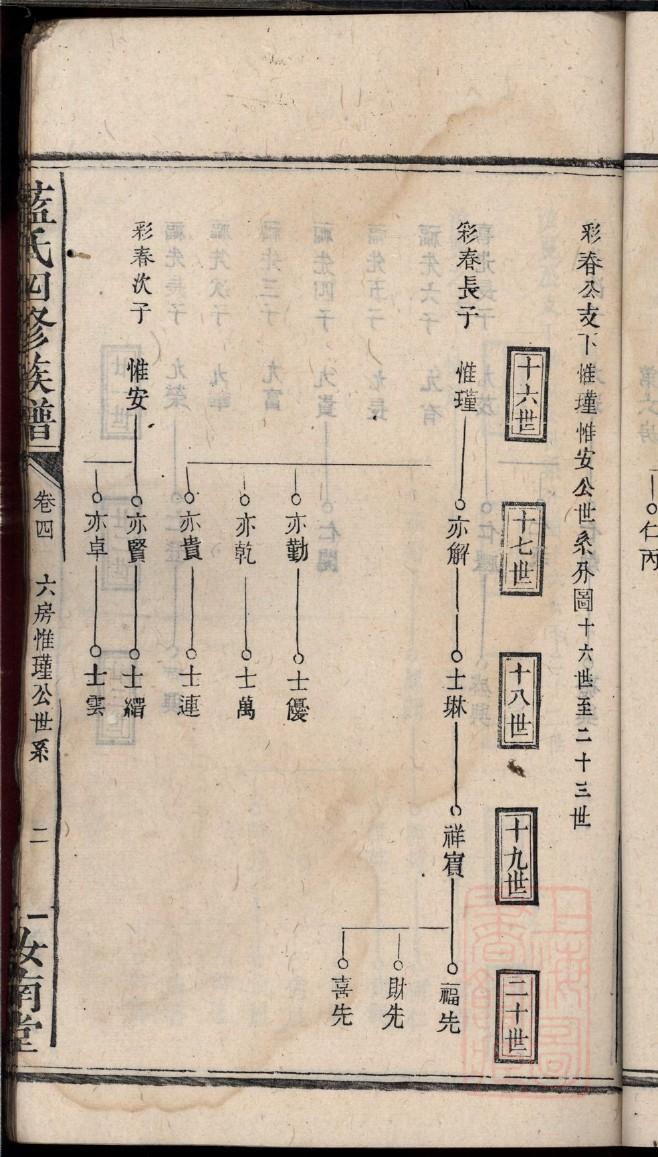 彩春公支下惟瑾惟安公世系册圖十六世至二十三世
十六世
十七世
十八世
十九世
二十世
彩春長子
惟瑾
亦解
士琳
祥賓
福先
財先
喜先
亦勤
士優
亦乾
士萬
亦貴
士連
彩春次子
惟安
亦賢
士縉
亦卓
士雲
藍氏四修族譜
卷四
六房惟瑾公世系
二
汝南堂
仁丙